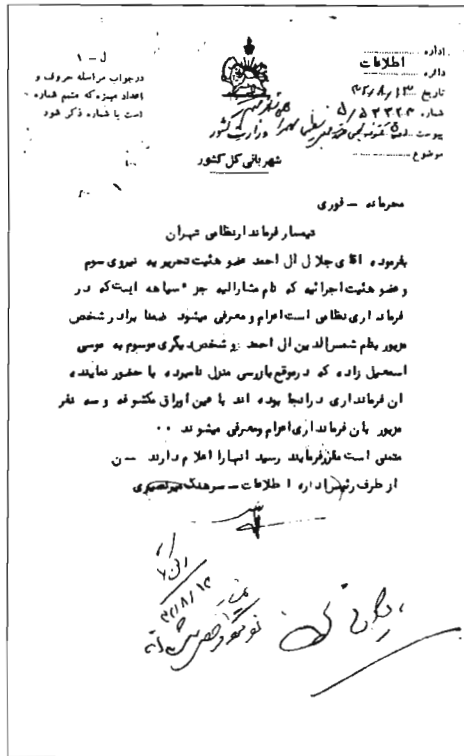 اداره اطلاعات
دائره
تاریخ ۳۲/۸/۱۳
شماره ۵/۵۲۳۲۴
پیوست
موضوع
ل - ۱
در جواب مراسله حروف و
اعداد میزه که متمم شماره
است با شماره ذکر شود
وزارت کشور
شهربانی کل کشور
محرمانه - فوری
تیمسار فرماندار نظامی تهران
بفرموده آقای جلال ال احمد عضو هئیت تحریریه نیروی سوم
و عضو هئیت اجرائیه که نام مشارالیه جز سیاهه ایست که در
فرمانداری نظامی است اعزام و معرفی میشود ضمنا برادر شخص
مزبور بنام شمس الدین ال احمد و شخص دیگری موسوم به موسی
اسمعیل زاده که در موقع بازرسی منزل نامبرده با حضور نماینده
ان فرمانداری در انجا بوده اند با عین اوراق مکشوفه و سه نفر
مزبور بان فرمانداری اعزام و معرفی میشوند ۰۰
متمنی است مقرر فرمایند رسید انها را اعلام دارند - ن
از طرف رئیس اداره اطلاعات - سرهنگ
۳۲/۸/۱۳